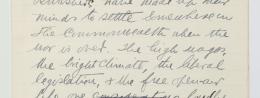 have made up their
minds to settle somewhere in
the Commonwealth when the
war is over. The high wages,
the bright climate, the liberal
legislation, & the free